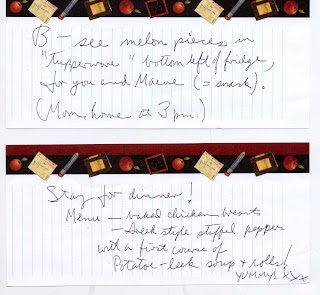 B – see melon pieces in
"Tupperware" bottom left of fridge,
for you and Maeve (= snack).
(Mom home at 3 pm.)
Stay for dinner!
Menu – baked chicken breasts
– Greek style stuffed peppers
with a first course of
Potatoe-leek soup + rolls!
yummy! xyx